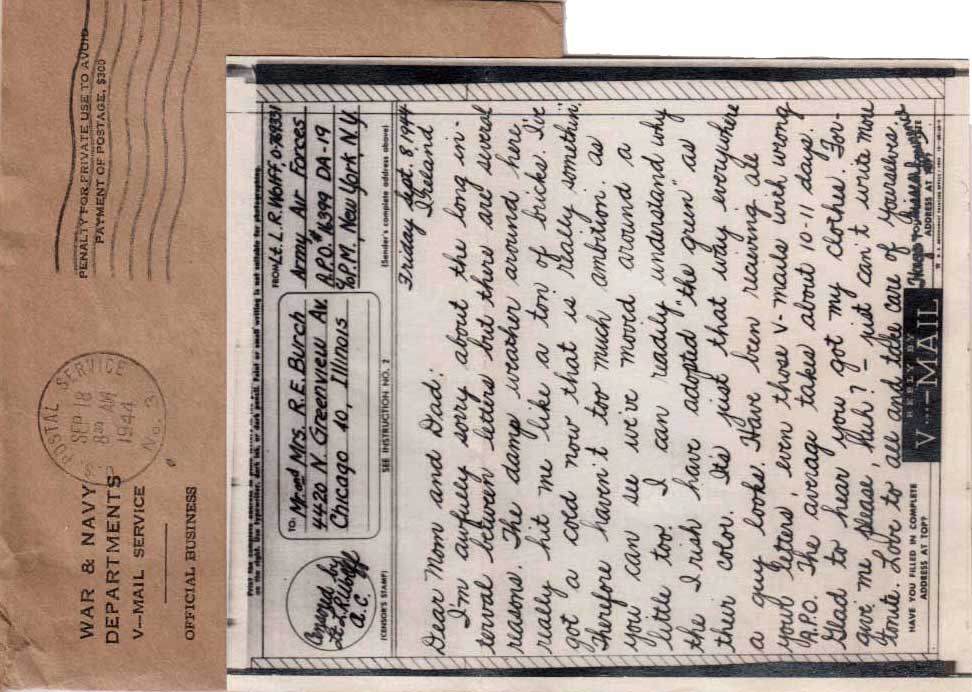 WAR & NAVY
DEPARTMENTS
V—MAIL SERVICE
OFFICIAL BUSINESS
U.S. POSTAL SERVICE
SEP 18
8 AM
1944
No. 3
PENALTY FOR PRIVATE USE TO AVOID
PAYMENT OF POSTAGE, $300
Print the complete address in plain
on the right. Use typewriter, dark ink, or dark pencil. Faint or small writing is not suitable for photographing.
Censored by
Lt L. R. Woff
A.C.
(CENSOR'S STAMP)
TO: Mr. and Mrs. R. E. Burch
4420 N. Greenview Av.
Chicago 40, Illinois
SEE INSTRUCTION NO. 2
FROM Lt. L. R. Woff
Army Air Forces
A.P.O. # 16399 DA-19
% P.M., New York, N.Y.
(Sender's complete address above)
Friday Sept. 8, 1944
Ireland
Dear Mom and Dad:
I'm awfully sorry about the long in-
terval between letters but there are several
reasons. The damp weather around here
really hit me like a ton of bucks. I've
got a cold now that is "really somethin".
Therefore haven't too much ambition. As
you can see we've moved around a
little too. I can readily understand why
the Irish have adopted "the green" as
their color. It's just that way everywhere
a guy looks. Have been receiving all
your letters, even those V-mails with wrong
A.P.O. The averag takes about 10-11 days.
Glad to hear you got my clothes. For-
give me please, huh? - just can't write more
tonite. Love to all and take care of yourselves.
HAVE YOU FILLED IN COMPLETE
ADDRESS AT TOP?
REPLY BY
V···—MAIL
ADDRESS AT TOP